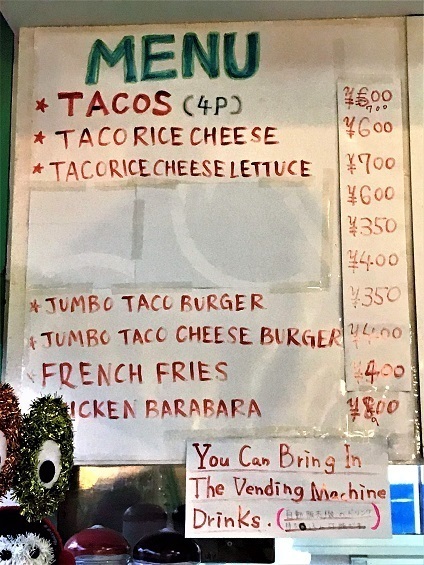 MENU
* TACOS (4P) ¥600 700
* TACO RICE CHEESE ¥600
* TACO RICE CHEESE LETTUCE ¥700
¥600
¥350
¥400
* JUMBO TACO BURGER ¥350
* JUMBO TACO CHEESE BURGER ¥400
* FRENCH FRIES ¥400
CHICKEN BARABARA
You Can Bring In
The Vending Machine
Drinks.